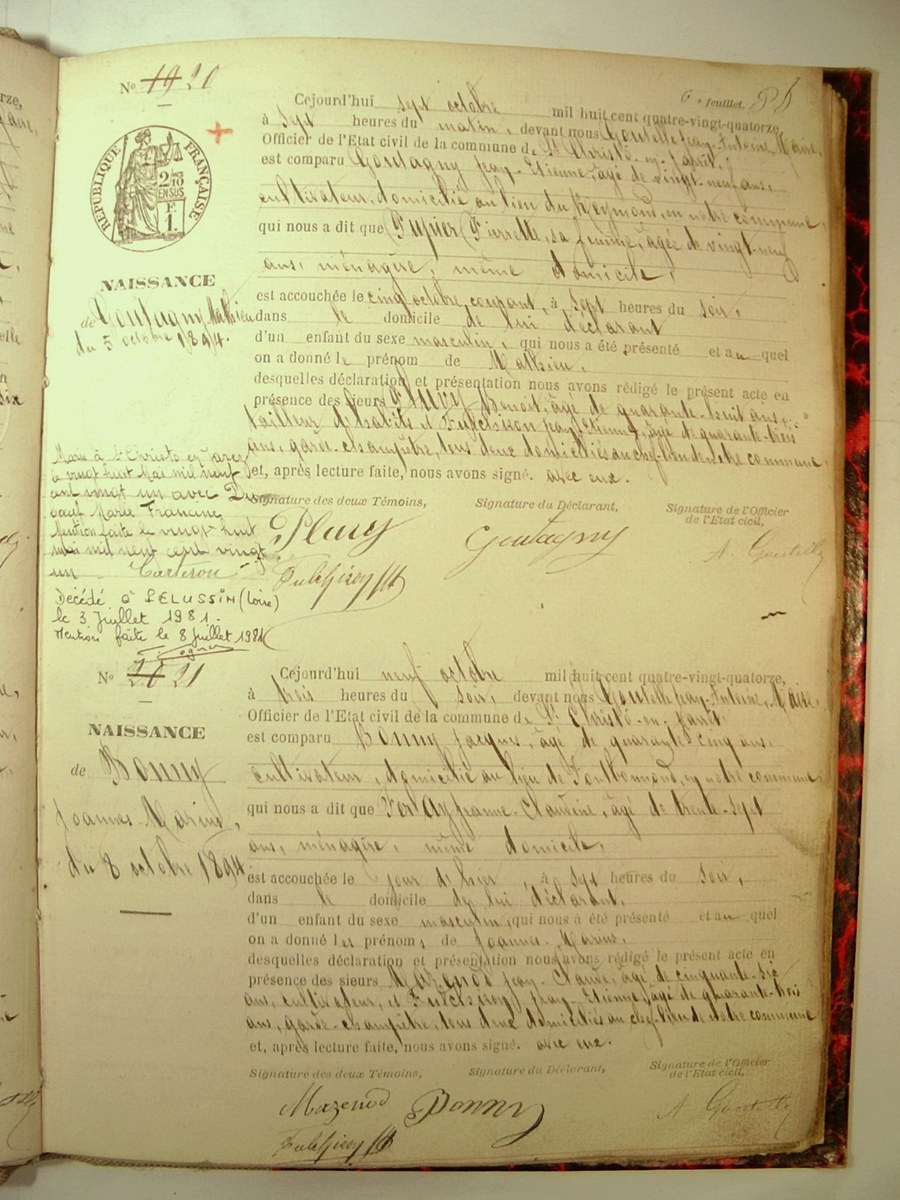 No 19 20
6e feuillet,
RÉPUBLIQUE FRANÇAISE
2/10 EN SUS
F 1
Cejourd'hui sept octobre mil huit cent quatre-vingt-quatorze,
à sept heures du matin, devant nous Goutelle Jean-Antoine, Maire,
Officier de l'Etat civil de la commune de St Christo-en-Jarez,
est comparu Goutagny Jean-Etienne, âgé de vingt-neuf ans,
cultivateur, domicilié au lieu du Reymond, en notre commune,
qui nous a dit que Pupier Pierrette, sa femme, âgée de vingt-neuf
ans, ménagère, même domicile,
est accouchée le cinq octobre courant, à sept heures du soir,
dans le domicile de lui déclarant
d'un enfant du sexe masculin, qui nous a été présenté et au quel
on a donné le prénom de Mathieu,
desquelles déclaration et présentation nous avons rédigé le présent acte en
présence des sieurs Pluvy Benoit, âgé de quarante-huit ans,
tailleur d'habits et Fulchiron Jean Etienne, âgé de quarante-trois
ans, garde-champêtre, tous deux domiciliés au chef-lieu de notre commune
et, après lecture faite, nous avons signé. avec eux.
Signature des deux Témoins, Signature du Déclarant, Signature de l'Officier
de l'Etat civil,
Pluvy Goutagny A. Goutelle
NAISSANCE
de Goutagny Mathieu
du 5 octobre 1894.
Marié à St Christo en Jarez
le vingt huit Mai mil neuf
cent vingt un avec
Marie Francine
Mention faite le vingt huit
mai mil neuf cent vingt
un
Décédé à PELUSSIN (Loire)
le 3 Juillet 1981.
Mention faite le 8 Juillet 1981
No 20 21
NAISSANCE
de Bonny
Joannes-Marius,
du 8 octobre 1894
Cejourd'hui neuf octobre mil huit cent quatre-vingt-quatorze,
à trois heures du soir, devant nous Goutelle Jean-Antoine, Maire
Officier de l'Etat civil de la commune de St Christo-en-Jarez
est comparu Bonny Jacques, âgé de quarante-cinq ans,
cultivateur, domicilié au lieu de Fontbonnons, en notre commune
qui nous a dit que Forlay Jeanne-Claudine, âgé de trente-sept
ans, ménagère, même domicile,
est accouchée le jour d'hier, à sept heures du soir,
dans le domicile de lui déclarant,
d'un enfant du sexe masculin, qui nous a été présenté et au quel
on a donné les prénoms de Joannes-Marius,
desquelles déclaration et présentation nous avons rédigé le présent acte en
présence des sieurs Mazenod Jean-Claude, âgé de cinquante-six
ans, cultivateur, et Fulchiron Jean-Etienne, âgé de quarante-trois
ans, garde-champêtre, tous deux domiciliés au chef-lieu de notre commune
et, après lecture faite, nous avons signé. avec eux.
Signature des deux Témoins, Signature du Déclarant, Signature de l'Officier
de l'Etat civil,
Mazenod Bonny A. Goutelle